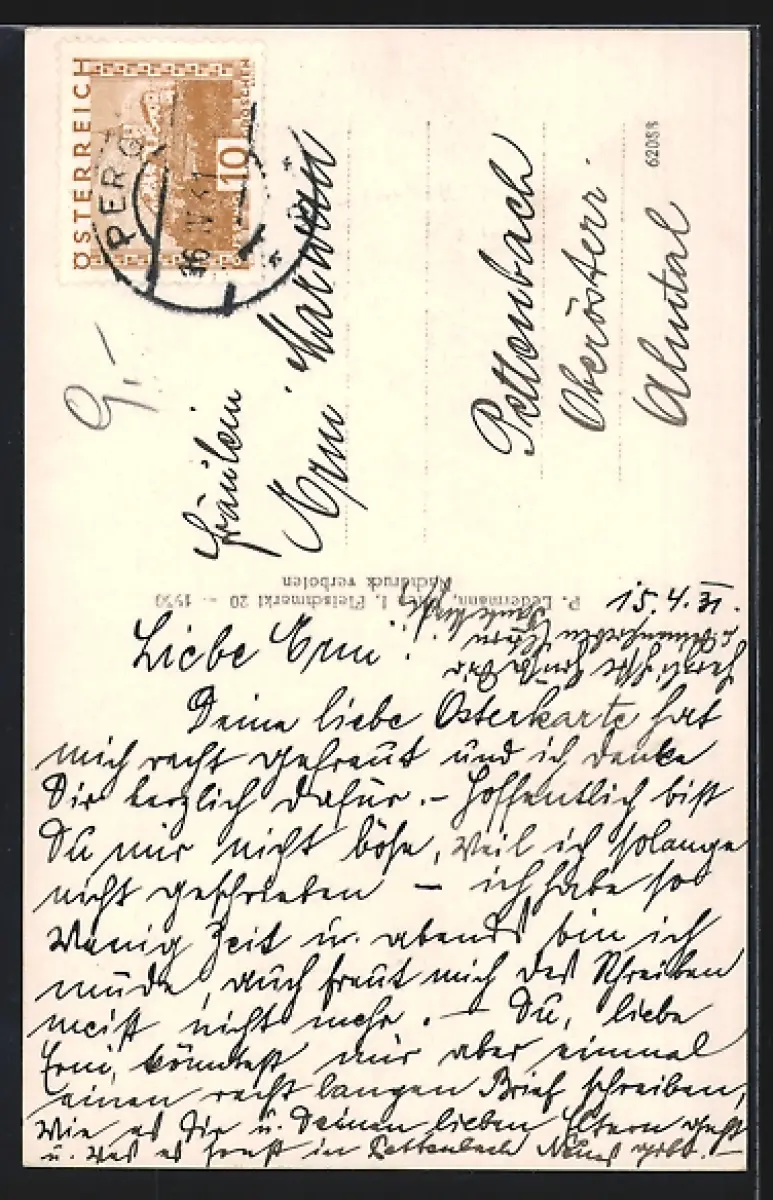 ÖSTERREICH
10
GROSCHEN
PERG
16 IV 31
G.-
Fräulein
Erni
Pettenbach
Oberösterr.
Almtal
62088
P. Ledermann, Wien I, Fleischmarkt 20 — 1930
Nachdruck verboten
15.4.31.
Liebe Erni!
Deine liebe Osterkarte hat
mich recht gefreut und ich danke
Dir herzlich dafür. – Hoffentlich bist
Du mir nicht böse, weil ich solange
nicht geschrieben – ich habe so
wenig Zeit u. abends bin ich
müde, auch freut mich das Schreiben
meist nicht mehr. – Du, liebe
Erni, könntest mir aber einmal
einen recht langen Brief schreiben,
wie es Dir u. Deinen lieben Eltern geht
u. was es sonst in Pettenbach Neues gibt. –